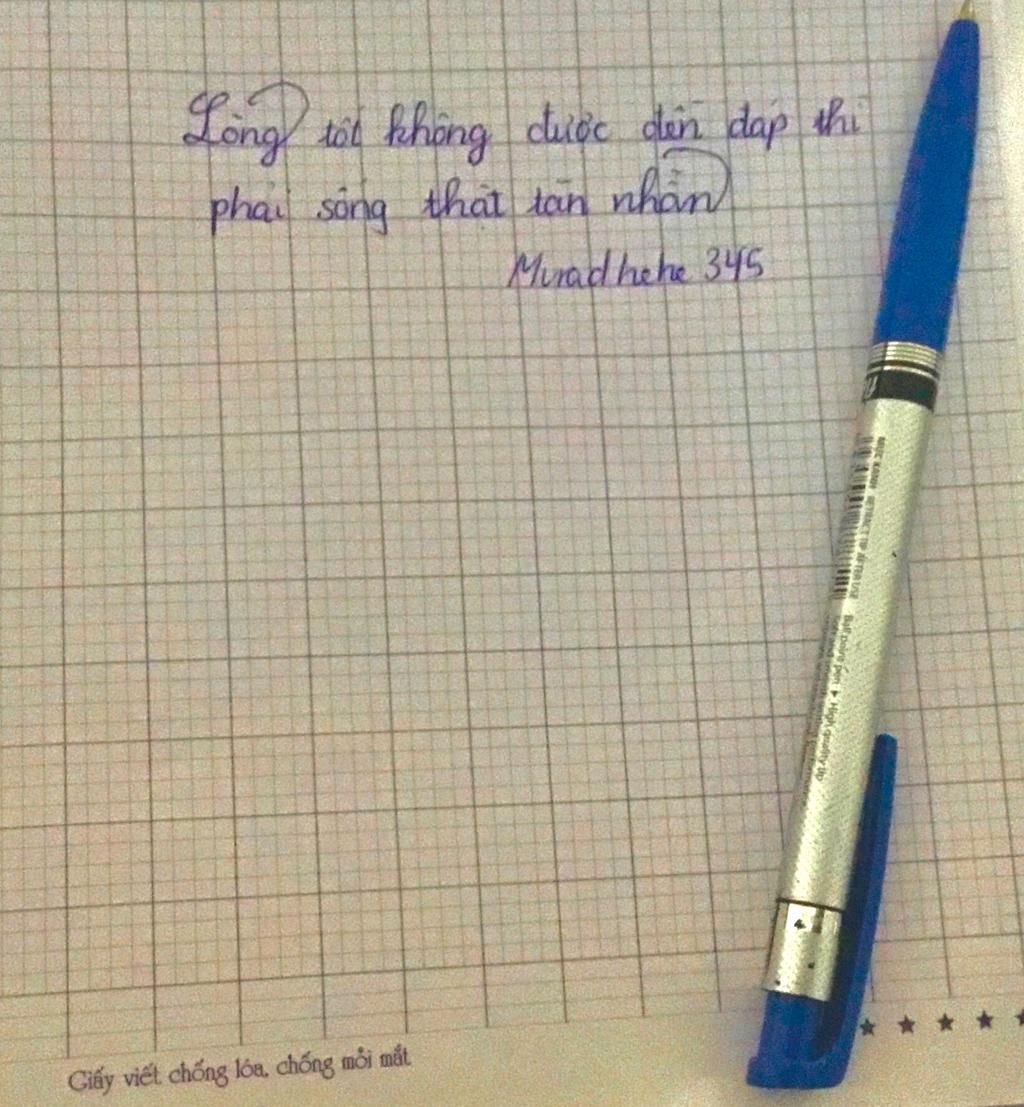 Lòng tốt không được đền đáp thì
phải sống thật tàn nhẫn
Murad hehe 345
Ball point pen ♦ High quality
Giấy viết chống lóa, chống mỏi mắt